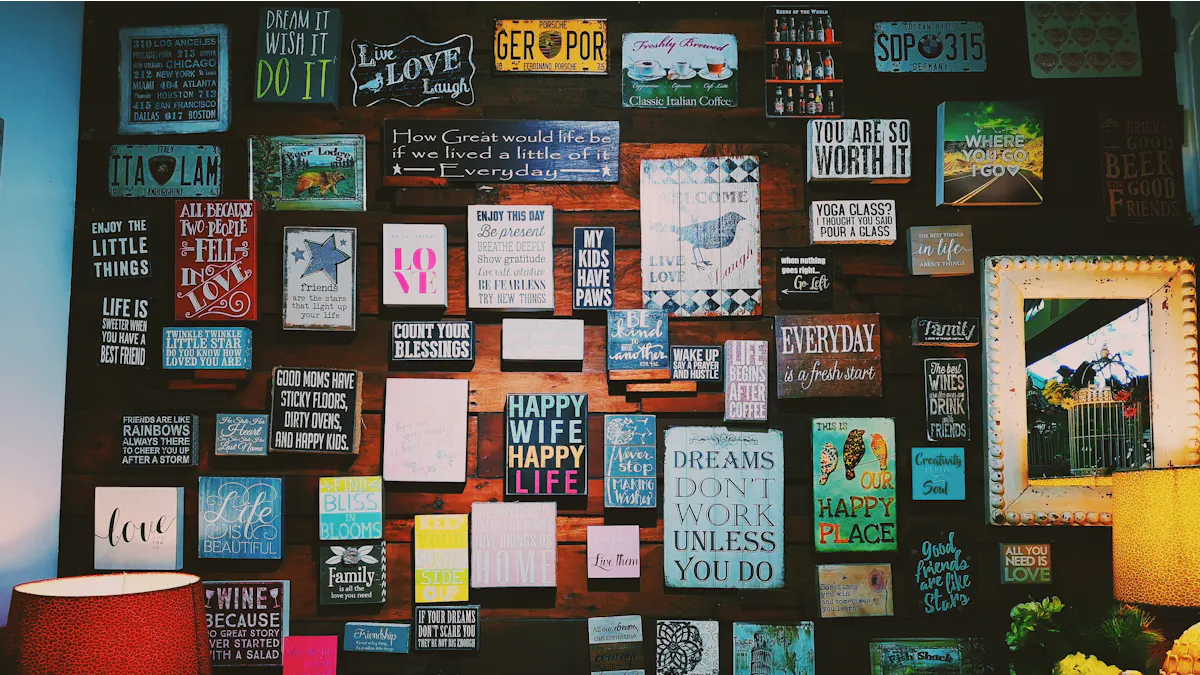 310 LOS ANGELES
PHILADELPHIA 215 DETROIT
NEW ORLEANS CHICAGO
212 NEW YORK St. Louis
MIAMI 404 ATLANTA
HOUSTON 713
415 SAN FRANCISCO
DALLAS 617 BOSTON
DREAM IT
WISH IT
DO IT
Live
LOVE
Laugh
PORSCHE
GER POR
FERDINAND PORSCHE
Freshly Brewed
Classic Italian Coffee
BEERS OF THE WORLD
SDP 315
GERMANY
ITALY
ITA LAM
LAMBORGHINI
Bear Lodge
How Great would life be
if we lived a little of it
Everyday
YOU ARE SO
WORTH IT
WHERE
YOU GO
I GO
DRINK
GOOD
BEER
WITH GOOD
FRIENDS
ENJOY THE
LITTLE
THINGS
ALL BECAUSE
TWO PEOPLE
FELL
IN
LOVE
friends
are the stars
that light up
your life
LO
VE
ENJOY THIS DAY
Be present
BREATHE DEEPLY
Show gratitude
Live with intention
BE FEARLESS
TRY NEW THINGS
MY
KIDS
HAVE
PAWS
WELCOME
LIVE
LOVE
Laugh
YOGA CLASS?
I THOUGHT YOU SAID
POUR A CLASS
when nothing
goes right...
Go Left
THE BEST THINGS
in life
AREN'T THINGS
LIFE IS
SWEETER WHEN
YOU HAVE A
BEST FRIEND
TWINKLE TWINKLE
LITTLE STAR
DO YOU KNOW HOW
LOVED YOU ARE
COUNT YOUR
BLESSINGS
BE
kind to
one
another
WAKE UP
SAY A PRAYER
AND HUSTLE
LIFE
BEGINS
AFTER
COFFEE
EVERYDAY
is a fresh start
Family
The best
WINES
DRINK
with
FRIENDS
GOOD MOMS HAVE
STICKY FLOORS,
DIRTY OVENS,
AND HAPPY KIDS.
FRIENDS ARE LIKE
RAINBOWS
ALWAYS THERE
TO CHEER YOU UP
AFTER A STORM
He Stole Her
Heart
So She Stole His
Last Name
HAPPY
WIFE
HAPPY
LIFE
Never
stop
MAKING
Wishes
DREAMS
DON'T
WORK
UNLESS
YOU DO
THIS IS
OUR
HAPPY
PLACE
Creativity
FEEDS
the
Soul
love
Life
IS
BEAUTIFUL
FIND
BLISS
IN
BLOOMS
Family
is all the
love you need
KEEP
YOUR
SUNNY
SIDE
UP
HOME
Live them
Sometimes
you win
and sometimes
you learn
Good
friends
are like
Stars
ALL YOU
NEED IS
LOVE
WINE
BECAUSE
NO GREAT STORY
EVER STARTED
WITH A SALAD
Friendship
IF YOUR DREAMS
DON'T SCARE YOU
THEY'RE NOT BIG ENOUGH
All our dreams
can come true
Fish Shack